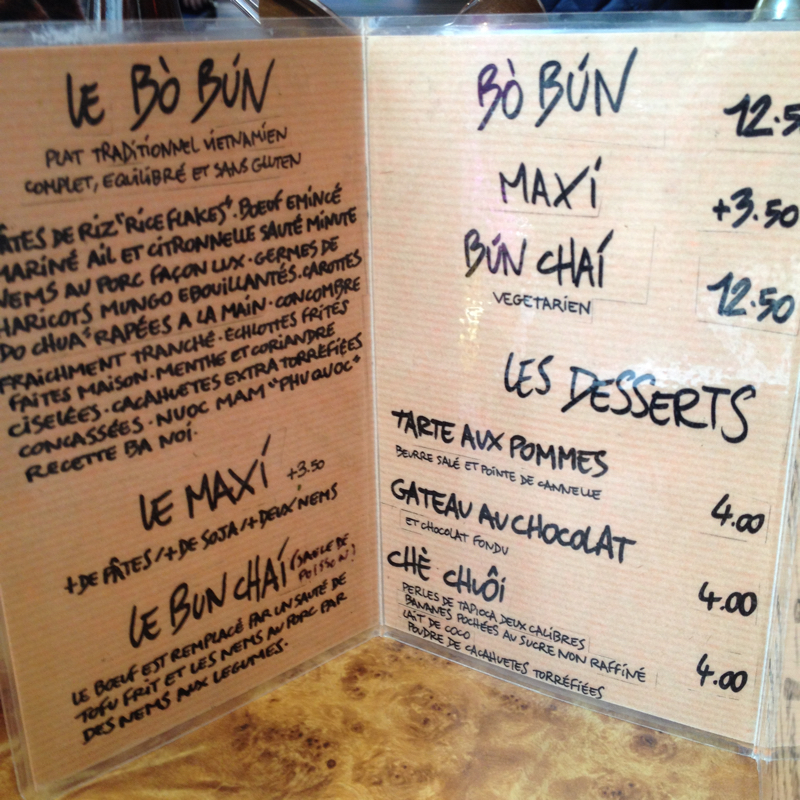 LE BÒ BÚN
PLAT TRADITIONNEL VIETNAMIEN
COMPLET, EQUILIBRÉ ET SANS GLUTEN
PÂTES DE RIZ "RICE FLAKES". BOEUF EMINCÉ
MARINÉ AIL ET CITRONNELLE SAUTÉ MINUTE
NEMS AU PORC FAÇON LUX. GERMES DE
HARICOTS MUNGO EBOUILLANTÉS. CAROTTES
"DO CHUA" RAPÉES A LA MAIN. CONCOMBRE
FRAICHMENT TRANCHÉ. ÉCHLOTTES FRITES
FAITES MAISON. MENTHE ET CORIANDRE
CISELÉES. CACAHUETES EXTRA TORRÉFIÉES
CONCASSÉES. NUOC MAM "PHU QUOC"
RECETTE BA NOÍ.
LE MAXÍ +3.50
+ DE PÂTES / + DE SOJA / + DEUX NEMS
LE BUN CHAÍ (SAUF LE DE POISSON!)
LE BOEUF EST REMPLACÉ PAR UN SAUTÉ DE
TOFU FRIT ET LES NEMS AU PORC PAR
DES NEMS AUX LEGUMES.
BÒ BÚN 12.5
MAXÍ +3.50
BÚN CHAÍ 12.50
VEGETARIEN
LES DESSERTS
TARTE AUX POMMES
BEURRE SALÉ ET POINTE DE CANNELLE 4.00
GATEAU AU CHOCOLAT
ET CHOCOLAT FONDU 4.00
CHÈ CHUÔI
PERLES DE TAPIOCA DEUX CALIBRES
BANANES POCHÉES AU SUCRE NON RAFFINÉ 4.00
LAIT DE COCO
POUDRE DE CACAHUETES TORRÉFIÉES